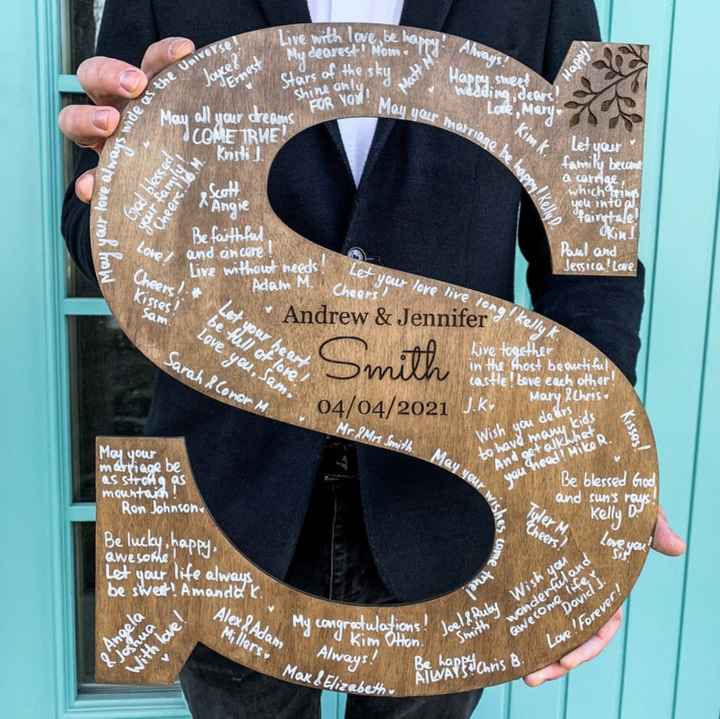 May your love always wide as the Universe!
Joyce &
Ernest
Live with love, be happy!
My dearest! Mom.
Stars of the sky
shine only
FOR YOU!
Matt M.
Always!
Happy sweet
wedding, dears!
Love, Mary
Happy!
May all your dreams
COME TRUE!
Kristi J.
May your marriage be happy! Kelly D.
Kim K.
Let your
family become
a carriage
which brings
you into a
fairytale!
Kim J.
Paul and
Jessica! Love.
God blessed
your family!
Cheers! M.
Scott
& Angie
Love!
Be faithful
and sincere!
Live without needs!
Adam M.
Cheers!
Kisses!
Sam
Let your love live long! Kelly K.
Cheers!
Let your heart
be full of love!
Love you, Sam.
Sarah & Conor M.
Andrew & Jennifer
Smith
04/04/2021
Mr. & Mrs. Smith
J.K.
Live together
in the most beautiful
castle! Love each other!
Mary & Chris
Wish you dears
to have many kids
And get all what
you need! Mike R.
Kisses!
May your wishes come true!
Be blessed God
and sun's rays!
Kelly D.
Tyler M.
Cheers!
Love you!
Sis
May your
marriage be
as strong as
mountain!
Ron Johnson
Be lucky, happy,
awesome!
Let your life always
be sweet! Amanda K.
Angela
& Joshua
With love!
Alex & Adam
Millers
My congratulations!
Kim Otton.
Always!
Max & Elizabeth
Joel & Ruby
Smith
Be happy
ALWAYS! Chris B.
Wish you
wonderful and
awesome life!
David J.
Love! Forever!